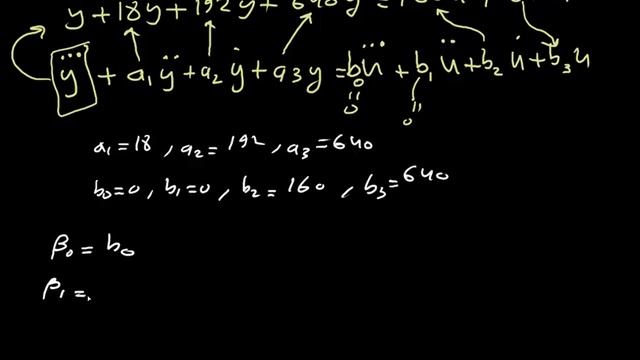 y + 18y + 192y + 640y =
y⃛ + a₁ÿ + a₂ẏ + a₃y = b₀u⃛ + b₁ü + b₂u̇ + b₃u
0 0
a₁ = 18 , a₂ = 192 , a₃ = 640
b₀ = 0 , b₁ = 0 , b₂ = 160 , b₃ = 640
β₀ = b₀
β₁ =